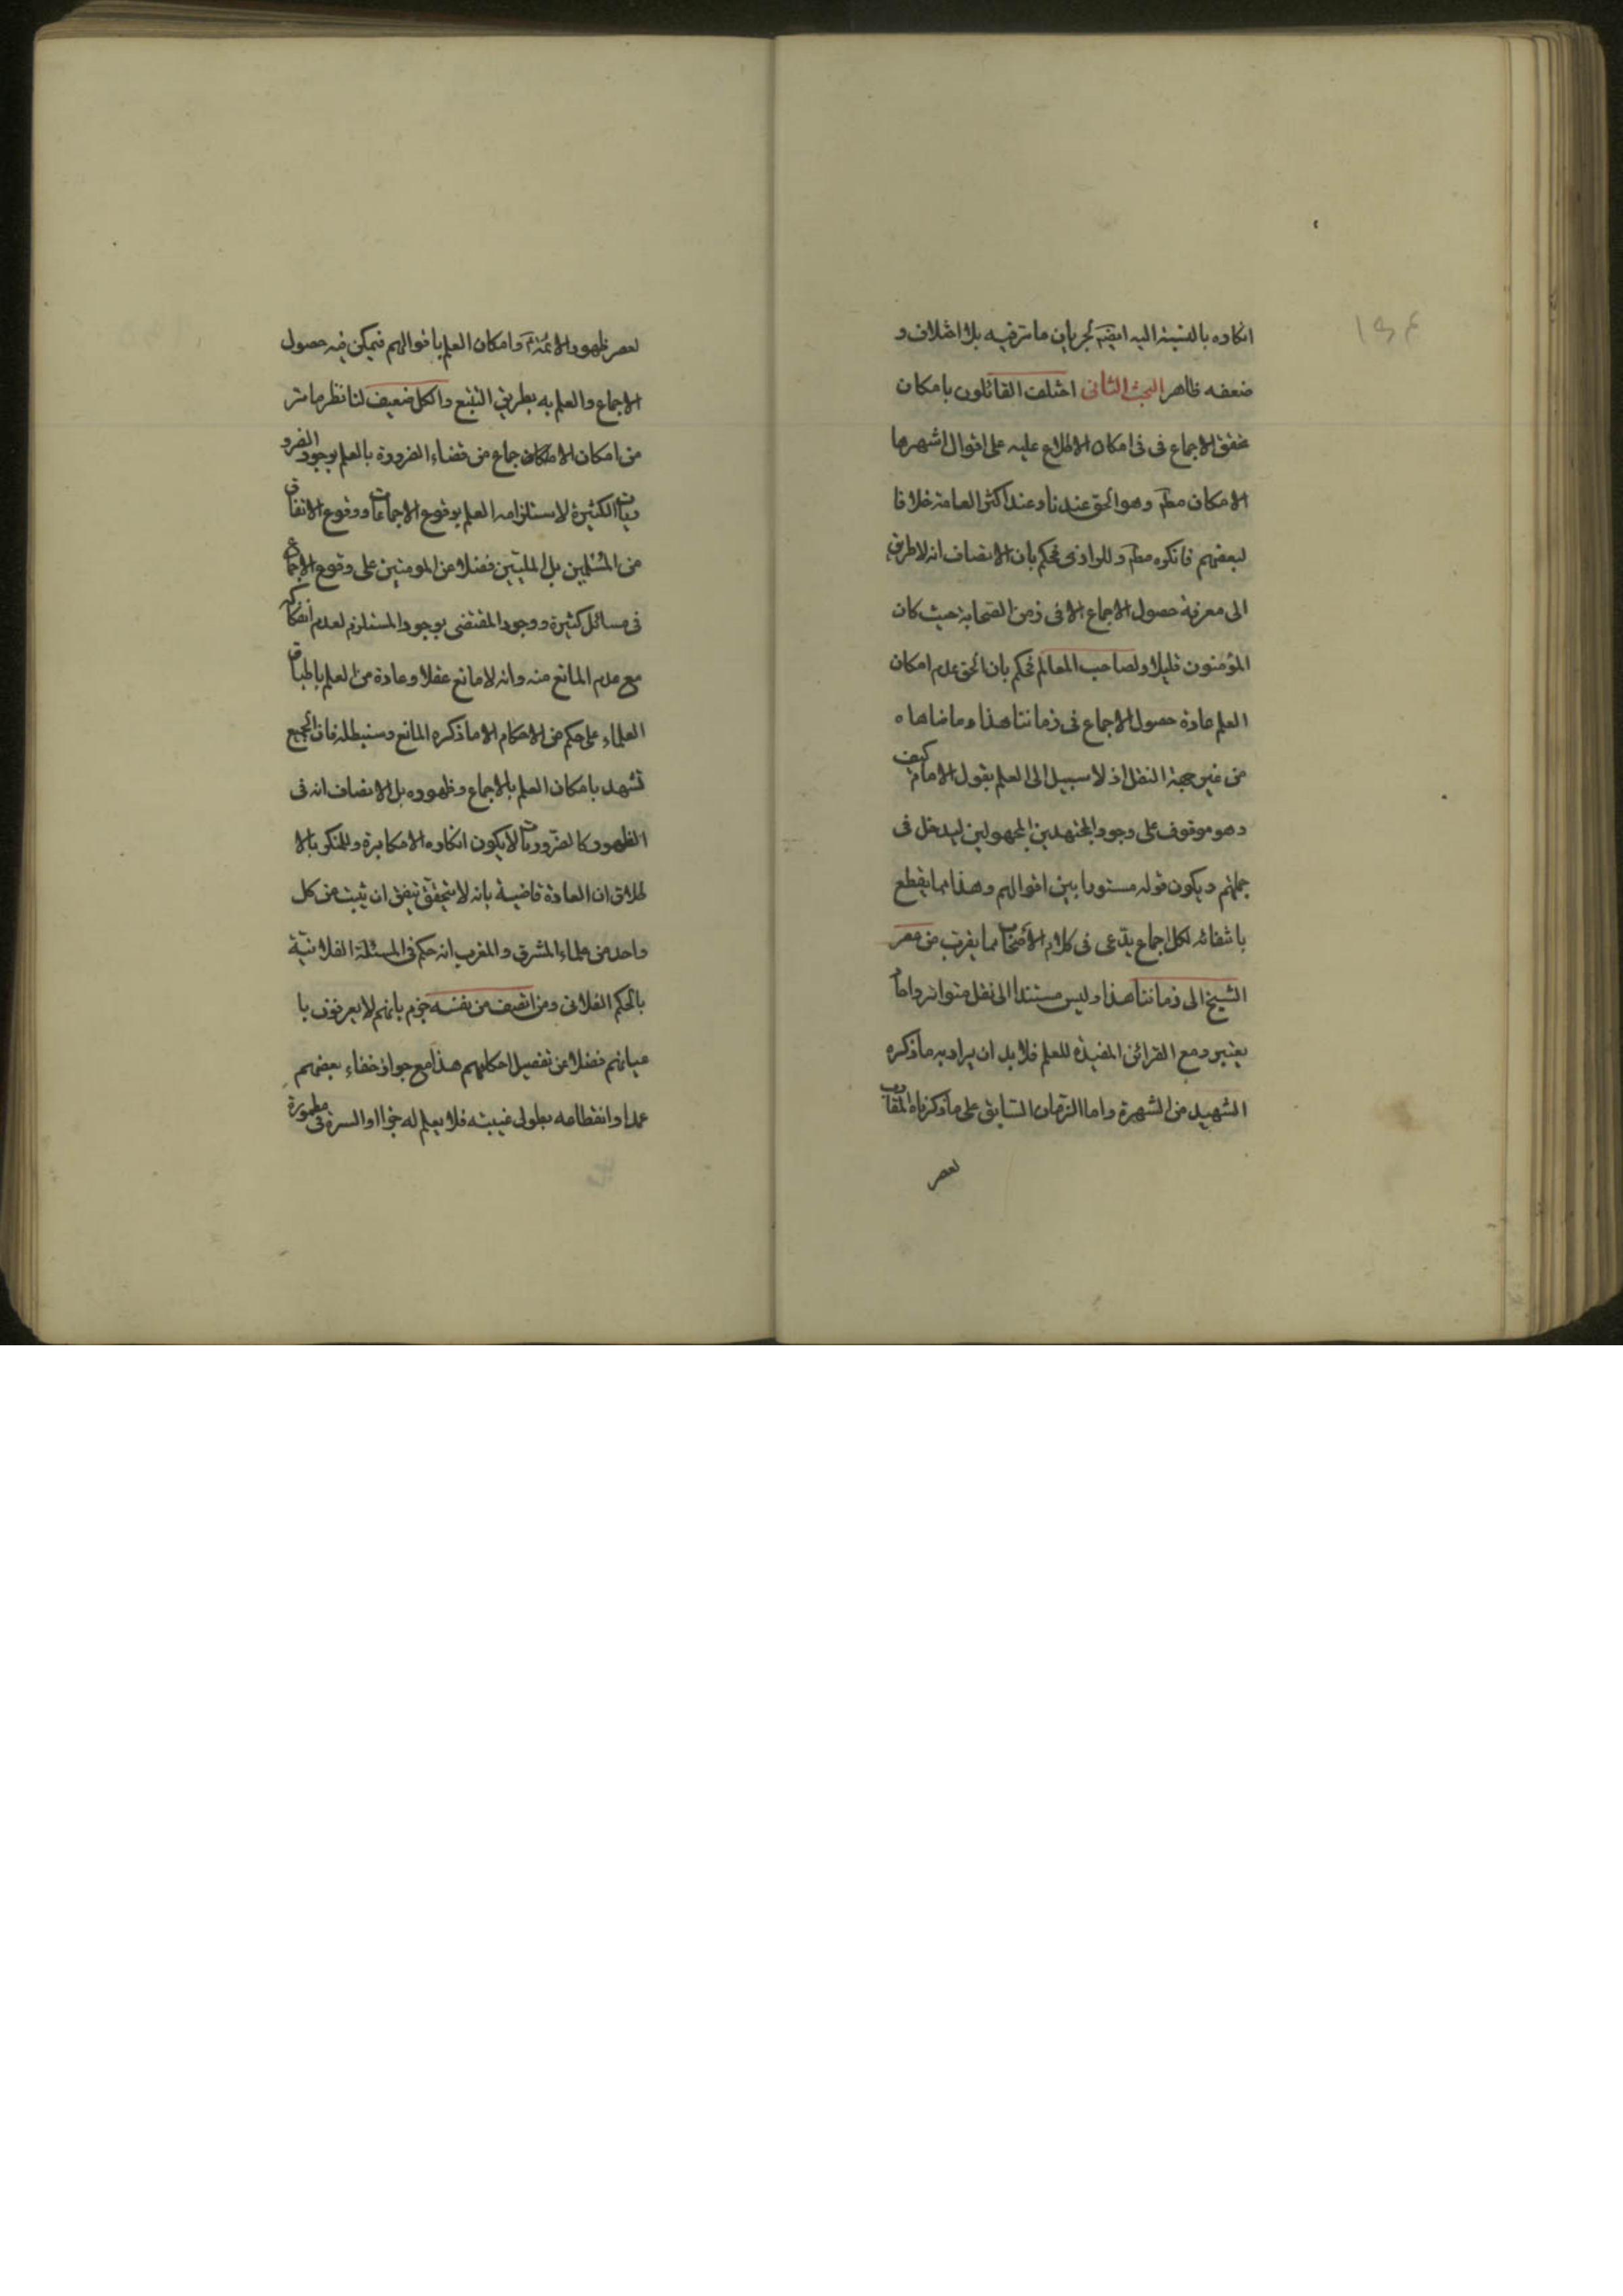 ١٩٤
انكاره بالنسبة اليه ايضا لجريان ما مر فيه بلا اختلاف و
ضعفه ظاهر البحث الثانى اختلف القائلون بامكان
تحقق الاجماع فى فى امكان الاطلاع عليه على اقوال اشهرها
الامكان مطم وهو الحق عندنا وعند اكثر العامة خلافا
لبعضهم فانكره مطم وللرازى فحكم بان الانصاف انه لا طريق
الى معرفة حصول الاجماع الا فى زمن الصحابة حيث كان
المؤمنون قليلا ولصاحب المعالم فحكم بان الحق عدم امكان
العلم عادة حصول الاجماع فى زماننا هذا وما ضاهاه
من غير جهة النقل اذ لا سبيل الى العلم بقول الامام كيف
وهو موقوف على وجود المجتهدين المجهولين ليدخل فى
جملتهم ويكون قوله مستورا بين اقوالهم وهذا مما يقطع
بانتفائه لكل اجماع يدعى فى كلام الاصحاب مما يقرب من عصر
الشيخ الى زماننا هذا وليس مستندا الى نقل متواتر واحاد
يعتبر ومع القرائن المفيدة للعلم فلا بد ان يراد به ما ذكره
الشهيد من الشهرة واما الزمان السابق على ما ذكرناه المقارب
لعصر
لعصر ظهور الائمة ع وامكان العلم باقوالهم فيمكن فيه حصول
الاجماع والعلم به بطريق التتبع والكل ضعيف لنا نظر ما مر
من امكان الاجماع من قضاء الضرورة بالعلم بوجود الضرو
ريات الكثيرة لاستلزامه العلم بوقوع الاجماعات ووقوع الاتفاق
من المسلمين بل المليين فضلا من المومنين على وقوع الاجماع
فى مسائل كثيرة ووجود المقتضى بوجود المستلزم لعدم انفكاكه
مع عدم المانع منه وانه لا مانع عقلا وعادة من العلم باطباق
العلماء على حكم من الاحكام الا ما ذكره المانع وسنبطله فان الجميع
تشهد بامكان العلم بالاجماع وظهوره بل الانصاف انه فى
الظهور كالضروريات لا يكون انكاره الا مكابرة وللمنكر بالا
طلاق ان العادة قاضية بانه لا يتحقق يتفق ان يثبت من كل
واحد من علماء المشرق والمغرب انه حكم فى المسئلة الفلانية
بالحكم الفلانى ومن انصف من نفسه جزم بانهم لا يعرفون با
عيانهم فضلا من تفصيل احكامهم هذا مع جواز خفاء بعضهم
عمدا وانقطاعه بطولى غيبته فلا يعلم له خبر او السره فى مطمورة